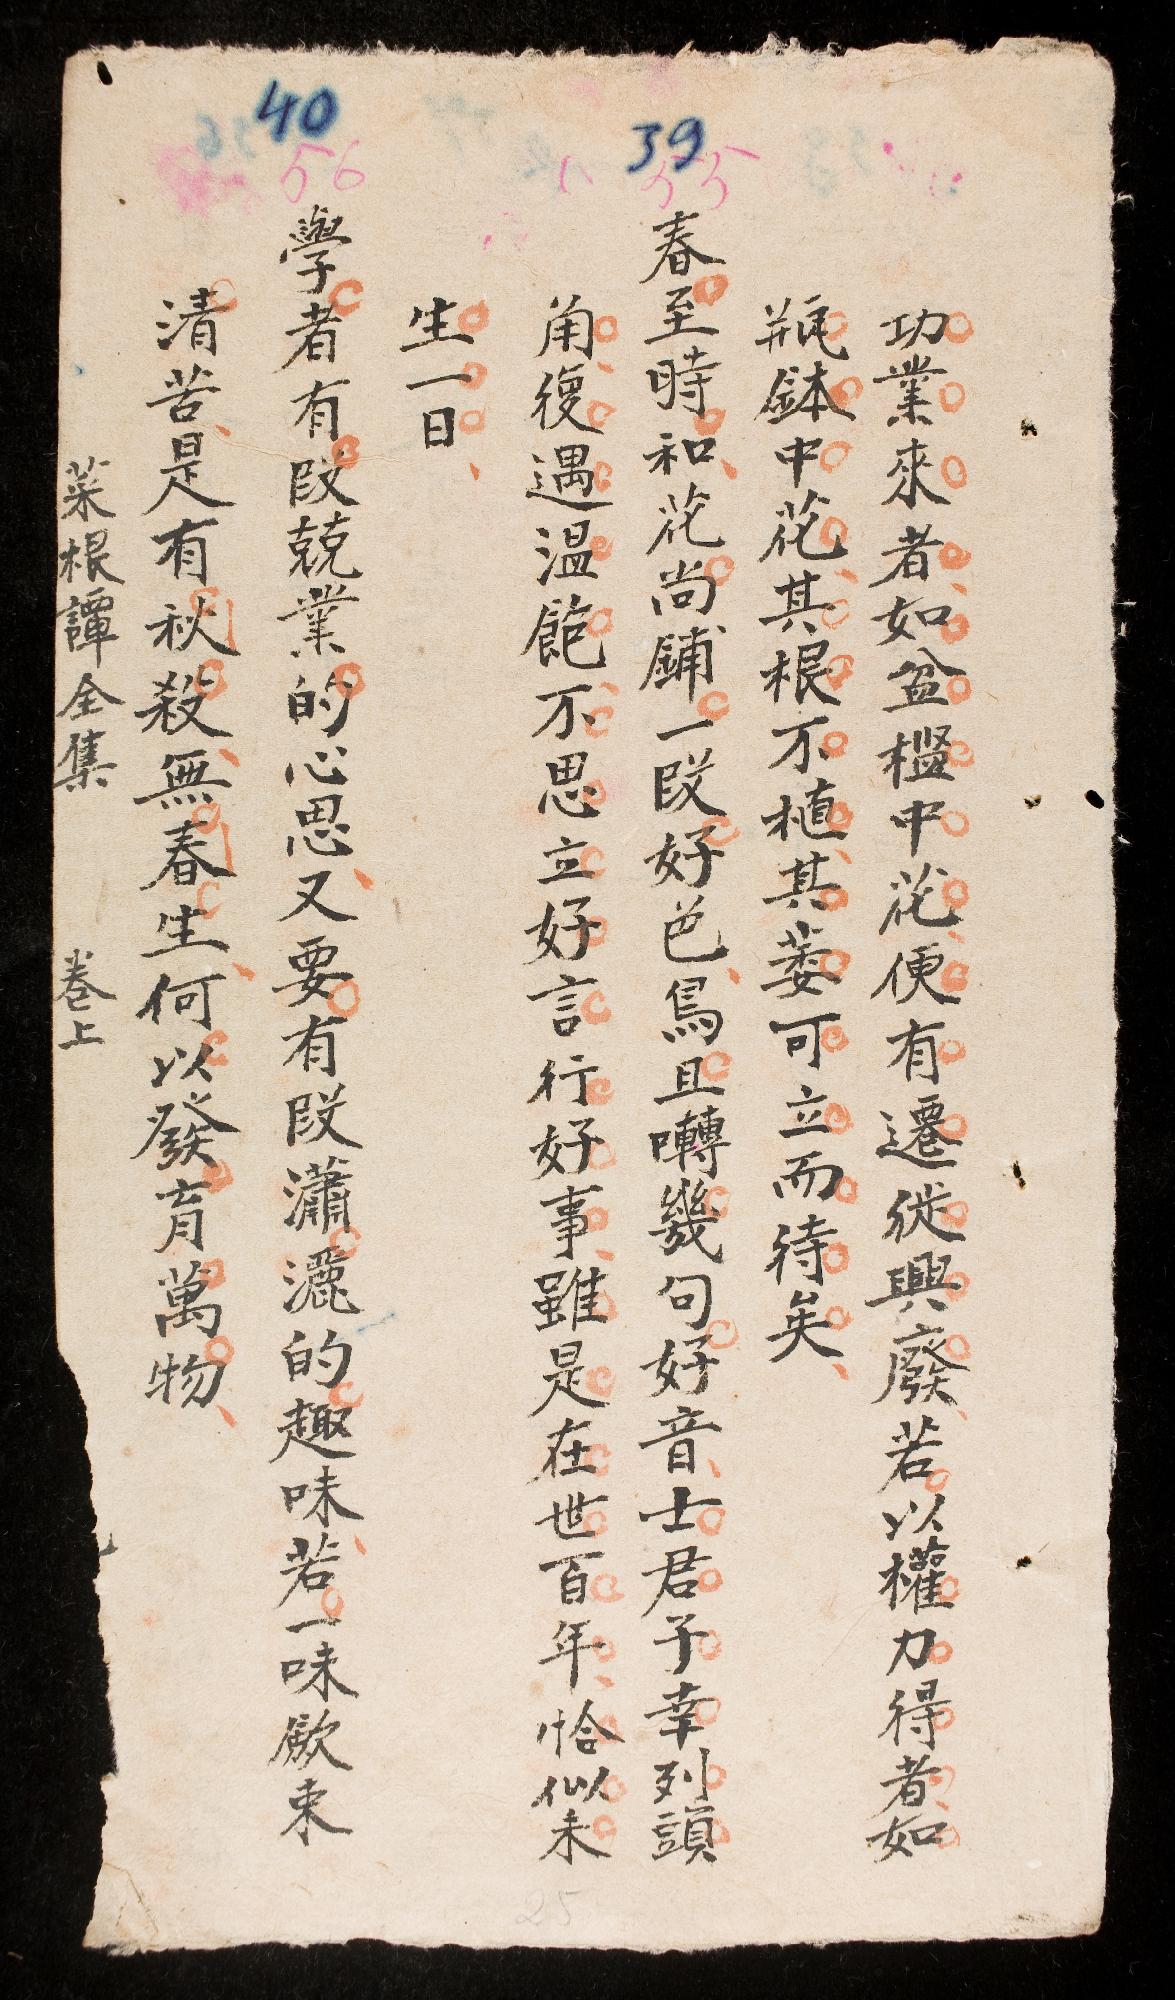 功業來者如盆檻中花便有遷徙興廢若以權力得者如
瓶鉢中花其根不植其萎可立而待矣
39
55
春至時和花尚鋪一段好色鳥且囀幾句好音士君子幸列頭
角復遇溫飽不思立好言行好事雖是在世百年恰似未
生一日
40
56
學者有段兢業的心思又要有段瀟灑的趣味若一味歛束
清苦是有秋殺無春生何以發育萬物
菜根譚全集 卷上
25